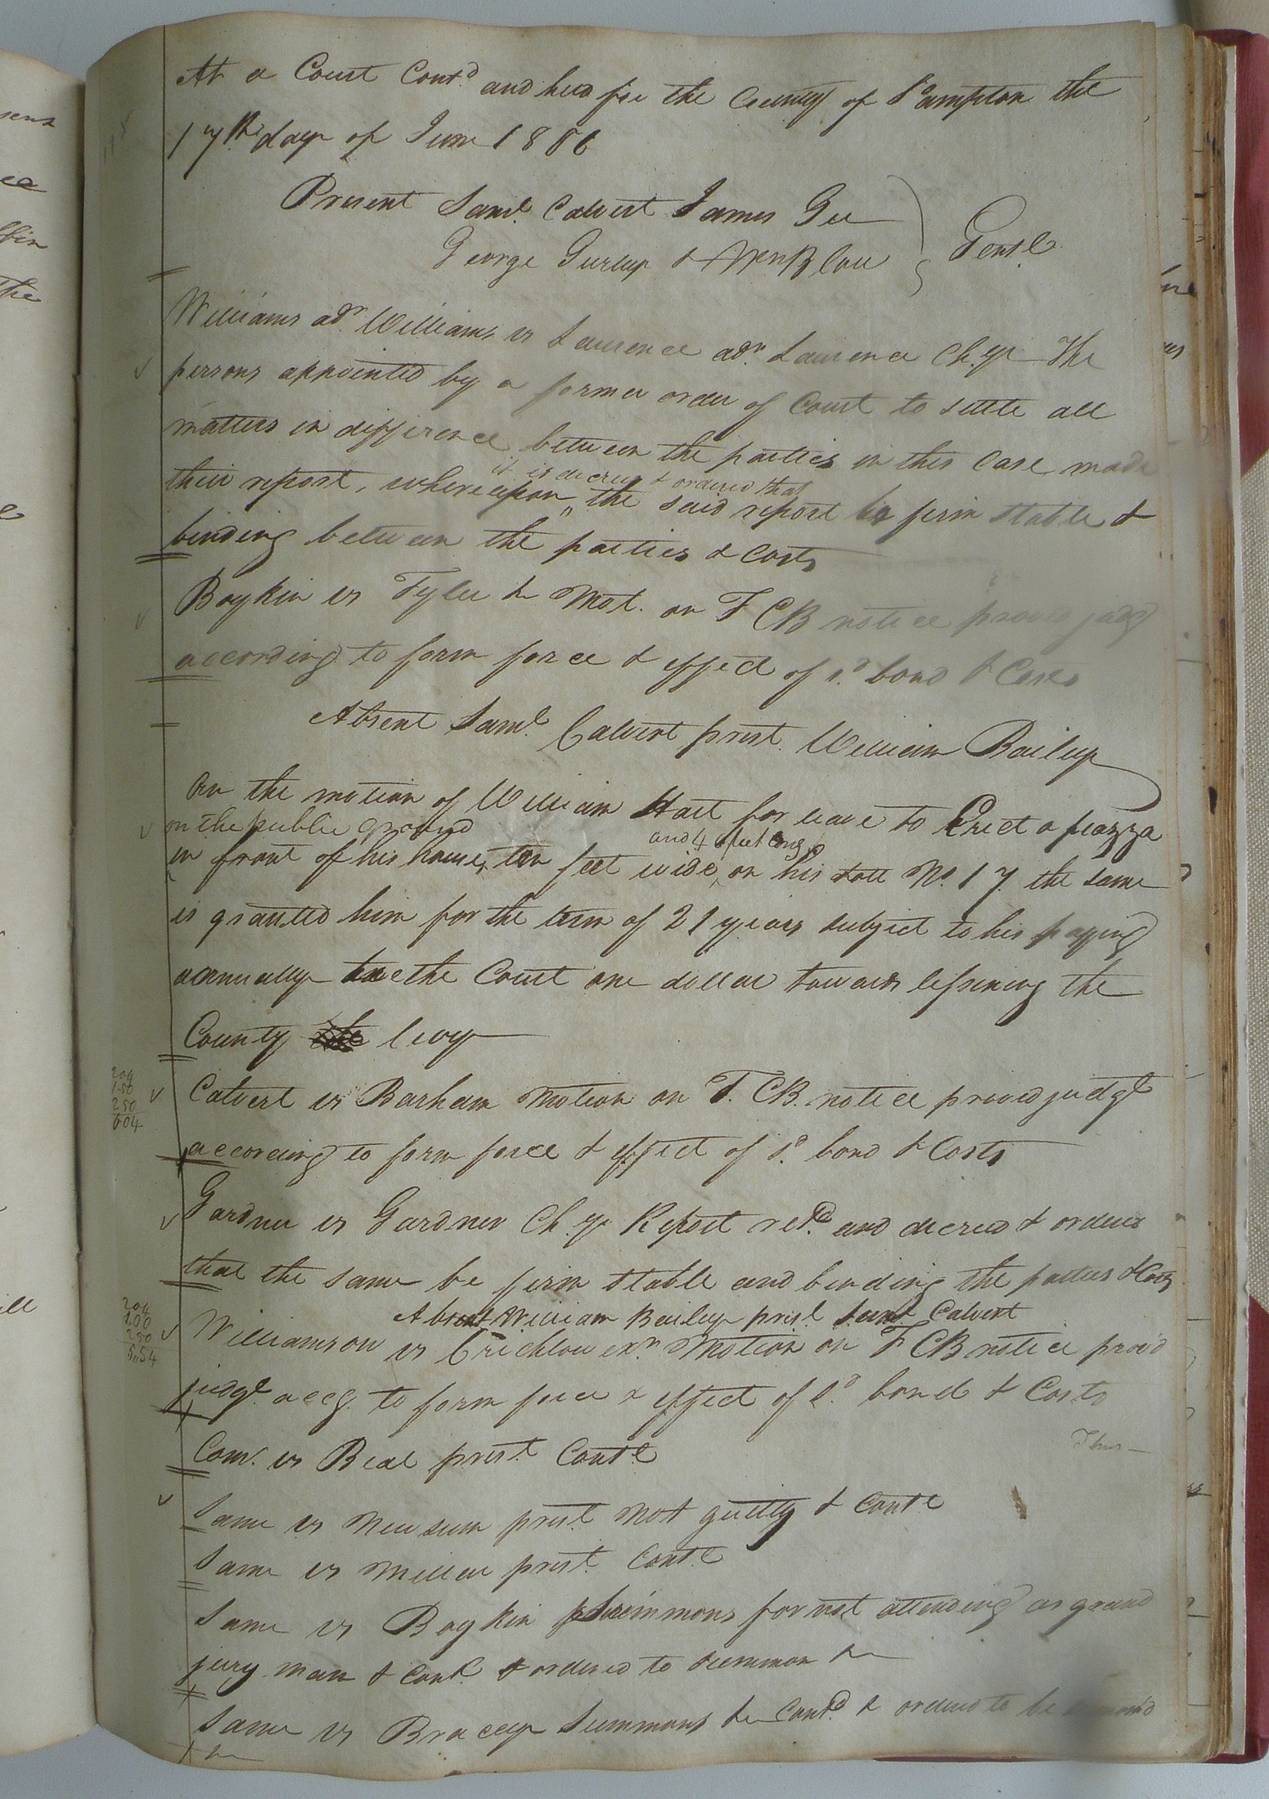 At a Court Contd. and held for the County of S°ampton the
17th day of June 1806
Present Saml. Calvert James Gee
George Gurley & Wm Blow } Gentl.
Williams adr. Williams vs Laurence adr. Laurence Ch.y. The
persons appointed by a former order of Court to settle all
matters in difference between the parties in this Case made
it is decreed & ordered that
their report, whereupon the said report be firm stable &
binding between the parties & Costs
Boykin vs Tyler &c Mot. on F C B notice proved judg
according to form force & effect of sd. bond & Costs
Absent Saml. Calvert prest. William Bailey
On the motion of William Hart for leave to Erect a piazza
on the public ground and 4 feet long
in front of his house, ten feet wide, on his lott No. 17 the same
is granted him for the term of 21 years subject to his paying
annually to the Court one dollar towards lessening the
County levy
209
1.50
2.50
6.04
Calvert vs Barham Motion on F. C B. notice proved judgt
according to form force & effect of sd. bond & Costs
Gardner vs Gardner Ch.y. Report retd. and decreed & ordered
that the same be firm stable and binding the parties & Costs
Absent William Bailey prest. Saml Calvert
204
1.00
2.50
5.54
Williamson vs Crichlow exr. Motion on F C B notice prov'd
judgt. accg. to form force & effect of sd. bond & Costs
Com. vs Beal prest. Contd.
Same vs Newsum prest. Not guilty & Contd
Same vs Millar prest. Contd
Same vs Boykin Summons for not attending as grand
jury man & Contd. & ordered to summon &c
Same vs Bracey Summons &c Contd. & ordered to be summon'd
&c